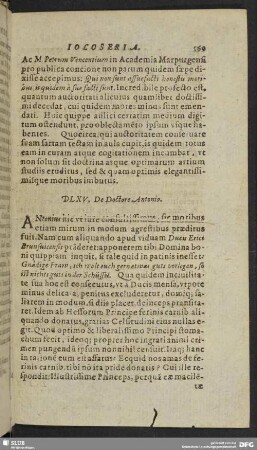 IOCOSERIA. 569
Ac M Petrum Vincentium in Academia Marpurgensi
pro publica concione non parum quidem sæpe di-
xisse accepimus: Qui non sunt assuefacti honestis mori-
bus,
quantum auctoritati alicuius quamlibet doctissimi
decedat, cui quidem mores minus sunt emen-
dati. Huic quippe assilici certatim medium digi-
tum ostendunt, pro oblectamento ipsum vsque ha-
bentes. Quocirca, qui auctoritatem conseruare
suam sartam tectam in aula cupit, is quidem totus
eam in curam atque cogitationem incumbat, vt
non solum sit doctrina atque optimarum artium
studiis eruditus, sed & quam optimis elegantissi-
misque moribus imbutus.
DLXV. De Doctore Antonio.
ANtonius hic vt iure consultissimus, sic moribus
etiam mirum in modum agrestibus præditus
fuit. Nam cum aliquando apud viduam Ducis Erici
Brunsuicensis prandere apponerem tibi Domina bo-
ni quippiam inquit, si tale quid in patinis inesset:
Gnädige Fraw, ich wolt euch gern etwas guts vorlegen,
ist nichts guts in der Schüssel. Qua quidem inciuilita-
te sua hoc est consecutus, vt à Ducis mensa,
modo minus deliciis posthac excluderetur, domique
laute in modum, si diis placet, delineas pransita-
ret. Idem ab Hessorum Principe ferinis carnib aliqu-
quando donatus, gratias Celsitudini eius nullas e-
git. Quod optimo & liberalissimo Principi stoma-
chum fecit, ideoque propter hoc ingrati animi cri-
men pungendum ipsum nonnihil censuit. Itaque hanc
in rationem est affatus: Ecquid nos amas de fe-
rinis carnib. tibi no ita pridē donatis? Cui ille re-
spondit: Illustrissime Princeps, perquā ex macilē-
tæ